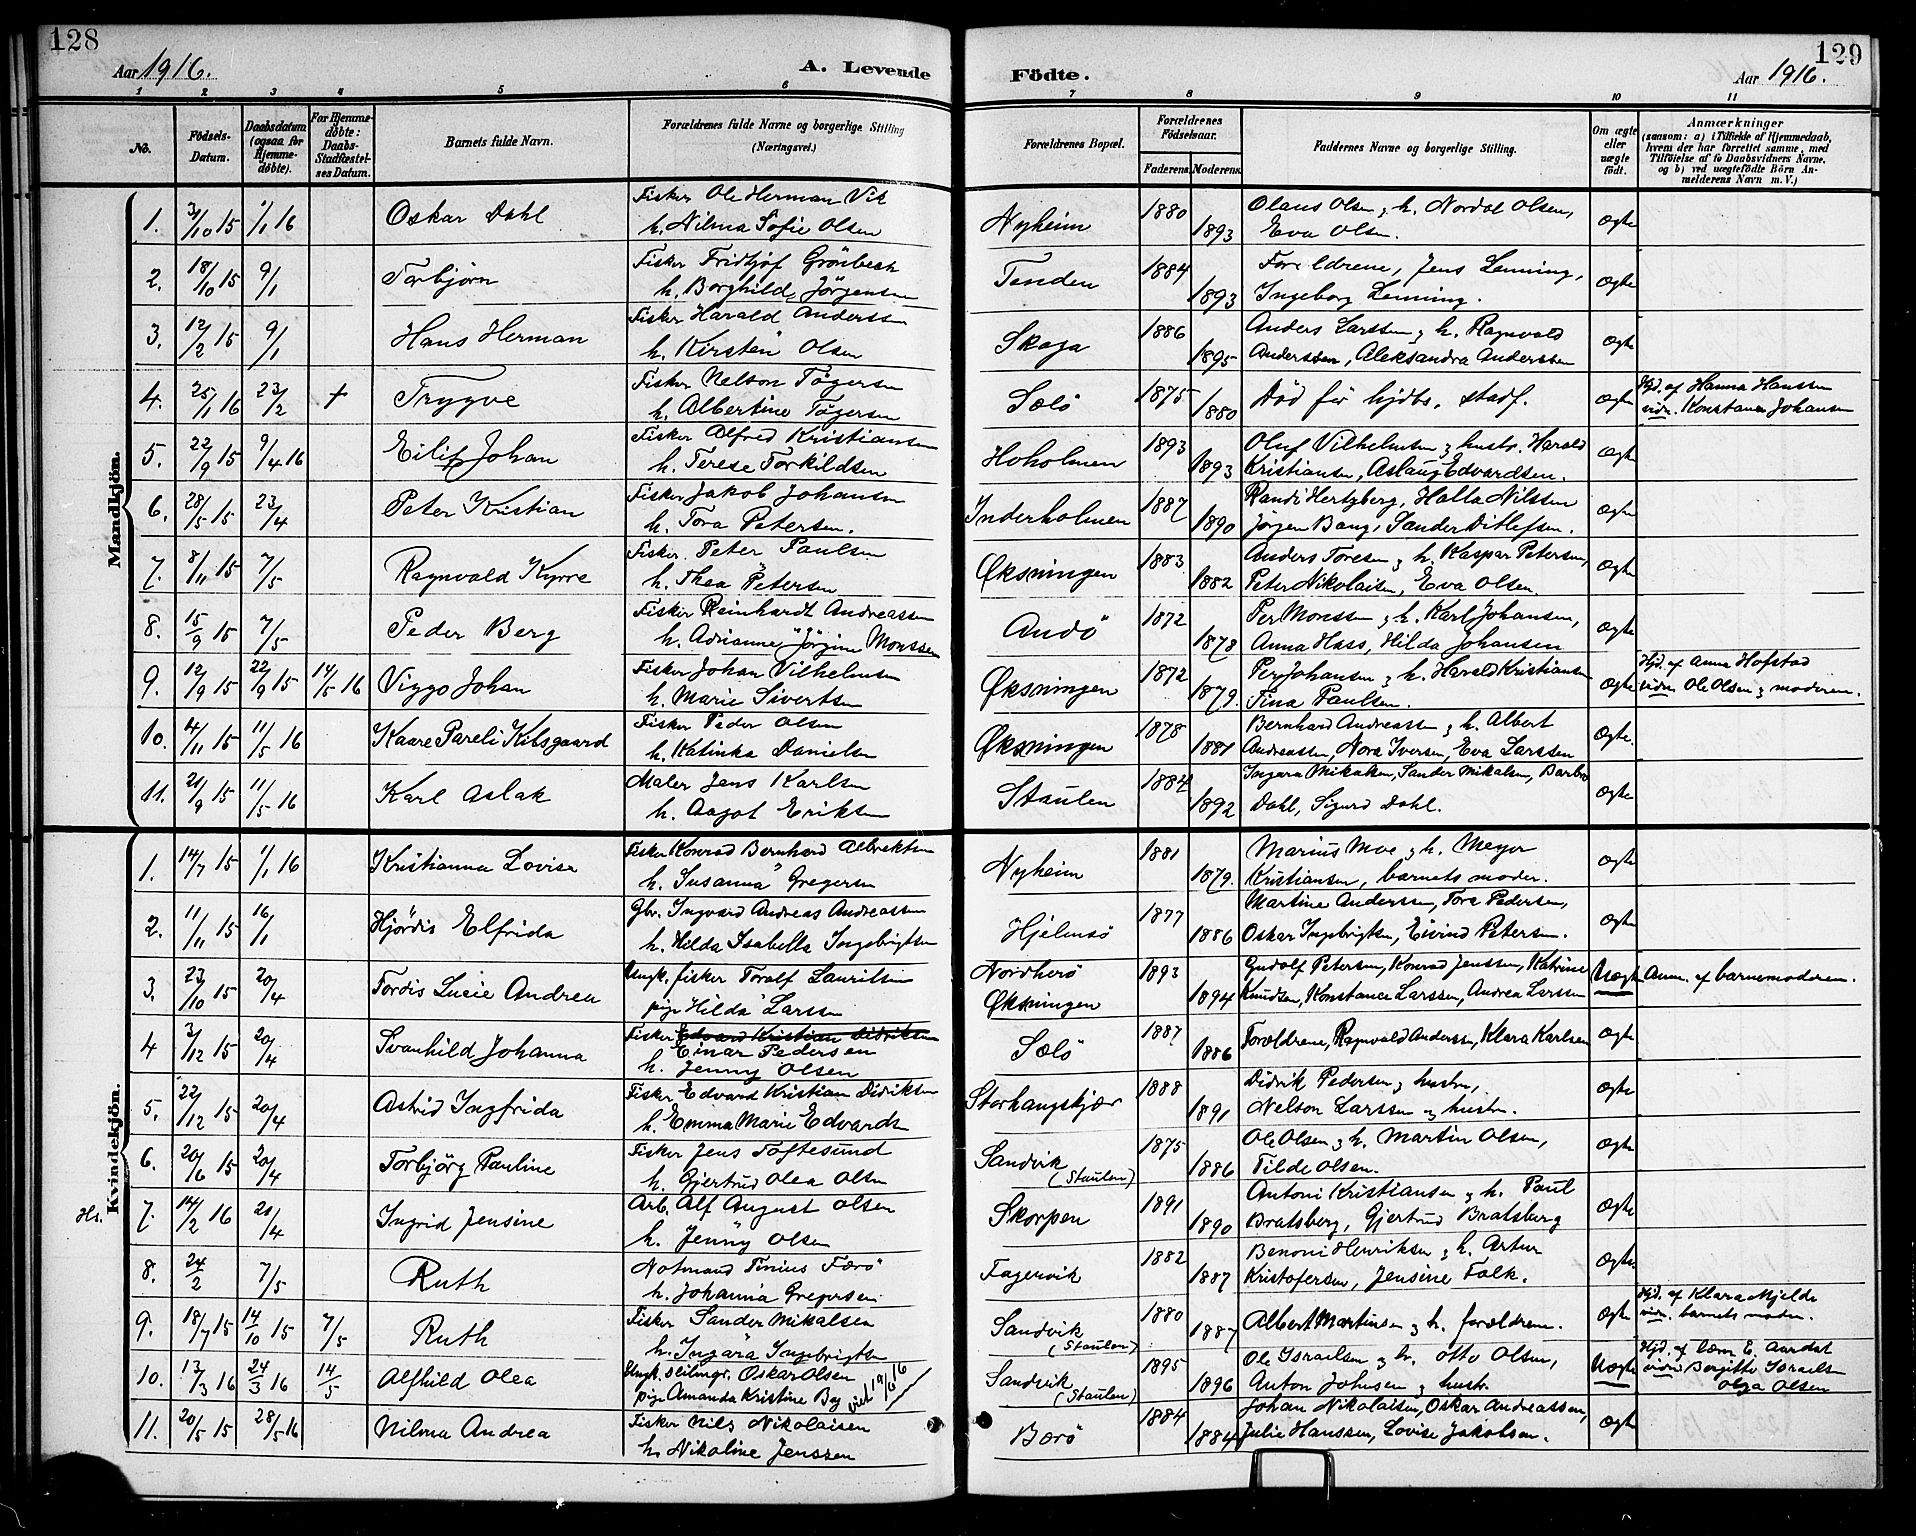 128
129
Aar 1916.
A. Levende Födte.
Aar 1916.
1 2 3 4 5 6 7 8 9 10 11
No.
Födsels-Datum.
Daabsdatum (ogsaa for Hjemme-döbte).
For Hjemme-döbte: Daabs-Stadfæstel-ses Datum.
Barnets fulde Navn.
Forældrenes fulde Navne og borgerlige Stilling (Næringsvei.)
Forældrenes Bopæl.
Forældrenes Födselsaar.
Faderens. Moderens.
Faddernes Navne og borgerlige Stilling.
Om ægte eller uægte födt.
Anmærkninger
(saasom: a) i Tilfælde af Hjemmedaab, hvem der har forrettet samme, med Tilföielse af to Daabsvidners Navne, og b) ved uægtefödte Börn Anmelderens Navn m. V.)
Mandkjön.
1. 3/10 15 1/1 16 Oskar Dahl Fisker Ole Herman Vik Nyheim 1880 Olaus Olsen & h. Nordal Olsen, Ægte
h. Nilma Sofie Olsen 1893 Eva Olsen.
2. 18/10 15 9/1 Torbjörn Fisker Fridtjof Grönbech Tenden 1884 Forældrene, Jens Lenning, Ægte
h. Borghild Jörgensen 1893 Ingeborg Lenning.
3. 12/2 15 9/1 Hans Herman Fisker Harald Anderssen Skaga 1886 Anders Larssen & h. Ragnvald Ægte
h. Kirsten Olsen 1895 Anderssen, Aleksandra Anderssen
4. 25/1 16 23/2 + Trygve Fisker Nelson Tögersen Sælö 1875 Död för hjdb. stadf. Ægte Hjd. af Hanna Hanssen
h. Albertine Tögersen 1880 vidn. Konstance Johansen
5. 22/9 15 9/4 16 Eilif Johan Fisker Alfred Kristiansen Hoholmen 1893 Oluf Vilhelmsen & hustr. Harald Ægte
h. Terese Torkildsen 1893 Kristiansen, Aslaug Edvardsen.
6. 28/5 15 23/4 Peter Kristian Fisker Jakob Johansen Inderholmen 1887 Randi Hertzberg, Halla Nilssen Ægte
h. Tora Petersen. 1890 Jörgen Bang, Sander Ditlefsen.
7. 8/11 15 7/5 Ragnvald Kyrre Fisker Peter Paulsen Öksningen 1883 Anders Toresen & h. Kaspar Petersen, Ægte
h. Thea Petersen 1882 Peter Nikolaisen, Eva Olsen
8. 15/9 15 7/5 Peder Berg Fisker Reinhardt Andreassen Andö 1872 Per Monssen & h. Karl Johansen, Ægte
h. Adrianne Jörgine Monssen 1878 Anna Hass, Hilda Johansen
9. 12/9 15 22/9 15 14/5 16 Viggo Johan Fisker Johan Vilhelmsen Öksningen 1872 Per Johansen & h. Harald Kristiansen Ægte Hjd. af Anna Hofstad
h. Marie Sivertsen 1879. Tina Paulsen. vidn. Ole Olsen & moderen.
10. 4/11 15 11/5 16 Kaare Pareli Kibsgaard Fisker Peder Olsen Öksningen 1878 Bernhard Andreassen & h. Albert Ægte.
h. Katinka Danielsen 1881 Andreassen, Nora Iversen, Eva Larssen
11. 21/9 15 11/5 16 Karl Aslak Maler Jens Karlsen Staulen 1884 Ingara Mikalsen, Sander Mikalsen, Barbro Ægte
h. Aagot Eriksen 1892 Dahl, Sigurd Dahl.
Kvindekjön.
1. 14/7 15 1/1 16 Kristianna Lovise Fisker Konrad Bernhard Albrektsen Nyheim 1881 Marius Moe & h. Meyer Ægte
h. Susanna Gregersen 1879. Kristiansen, barnets moder.
2. 11/11 15 16/1 Hjördis Elfrida Gbr. Ingvard Andreas Andreassen Hjelmsö 1877 Martine Anderssen, Tora Pedersen, Ægte
h. Hilda Isabella Ingebrigtsen 1886 Oskar Ingebrigtsen, Eivind Petersen.
3. 23/10 15 20/4 Tordis Lucie Andrea Ungk. fisker Toralf Lauritsen Nordherö 1893 Gudolf Petersen, Konrad Jenssen, Katrine Uægte Anm. af barnemoderen.
pige Hilda Larssen Öksningen 1894 Knudsen, Konstance Larssen, Andrea Larssen
4 3/12 15 20/4 Svanhild Johanna Fisker Edvard Kristian Didriksen Sælö 1887 Forældrene, Ragnvald Anderssen, Klara Karlsen Ægte
Einar Pedersen
h. Jenny Olsen 1886
5. 22/12 15 20/4 Astrid Ingfrida Fisker Edvard Kristian Didriksen Storhaugskjær 1888 Didrik Pedersen & hustru, Ægte
h. Emma Marie Edvardsen 1891 Nelson Larssen & hustr.
6. 20/6 15 20/4 Torbjörg Pauline Fisker Jens Toftesund Sandvik 1875 Ole Olsen & h. Martin Olsen, Ægte
h. Gjertrud Olea Olsen (Staulen) 1886 Tilde Olsen.
Hs. 7. 14/2 16 21/4 Ingrid Jensine Arb. Alf August Olsen Skorpen 1891 Antoni Kristiansen & h. Paul Ægte
h. Jenny Olsen 1890 Bratsberg, Gjertrud Bratsberg
8. 24/2 7/5 Ruth Notmand Tinius Færö Fagervik 1882 Benoni Henriksen & h. Artur Ægte
h. Johanna Gregersen 1887 Kristofersen, Jensine Falk.
9. 18/7 15 14/10 15 7/5 Ruth Fisker Sander Mikalsen Sandvik 1880 Albert Martinsen & h. forældrene. Ægte Hjd. af Klara Mjelde
h. Ingara Ingebrigtsen (Staulen) 1887 vidn. barnets moder.
10. 13/3 16 24/3 16 14/5 Alfhild Olea Ungk. Oskar Olsen Sandvik 1895 Ole Israelsen & h. Otto Olsen, Uægte Hjd. af lærer E. Aardal
pige Amanda Kristine viet 19/6 16 (Staulen) 1896 Anton Johnsen & hustr. vidn. Borgitte Israels
Olga Olsen
11. 20/5 15 28/5 16 Nilma Andrea Fisker Nils Nikolaisen Bærö 1884 Johan Nikolaisen, Oskar Andreassen, Ægte
h. Nikoline Jenssen 1884 Julie Hanssen, Lovise Jakobsen.